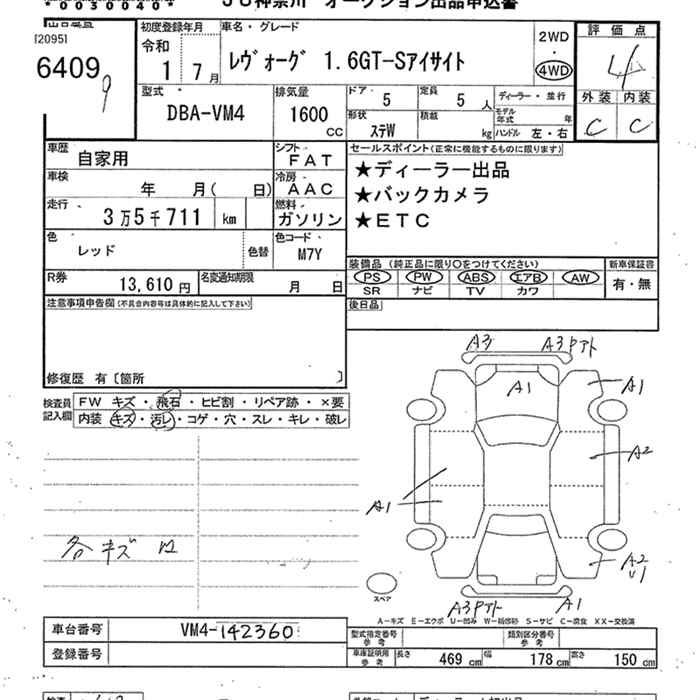 *00500040*
JU神奈川 オークション出品申込書
[2095]
6409
9
初度登録年月
令和
1 7月
車名・グレード
ﾚｳﾞｫｰｸﾞ 1.6GT-Sアイサイト
2WD
・
4WD
評価点
4
外装 内装
C C
型式
DBA-VM4
排気量
1600
CC
ドア 5
定員 5 人
ディーラー・並行
モデル年式 年
形状 ｽﾃW
積載 kg
ハンドル 左・右
車歴 自家用
シフト FAT
車検 年 月( 日)
冷房 AAC
走行 3万5千711 km
燃料 ガソリン
色 レッド 色替
色コード M7Y
R券 13,610円
名変通知期限 月 日
セールスポイント(正常に機能するものに限ります)
★ディーラー出品
★バックカメラ
★ETC
装備品(純正品に限り○をつけてください)
新車保証書
PS PW ABS エアB AW
有・無
SR ナビ TV カワ
後日品
注意事項申告欄(不具合内容等は具体的に記入して下さい)
修復歴 有〔箇所 〕
検査員記入欄
FW キズ・飛石・ヒビ割・リペア跡・×要
内装 キズ・汚レ・コゲ・穴・スレ・キレ・破レ
A3 A3Pアト
A1 A1
A2
A1
各キズ
A2
U1
スペア
A3Pアト A1
A－キズ E－エクボ U－凹み W－板修跡 S－サビ C－腐食 XX－交換済
車台番号 VM4-142360
登録番号
型式指定番号
参考
類別区分番号
参考
車庫証明用
参考
長さ 469 cm 幅 178 cm 高さ 150 cm